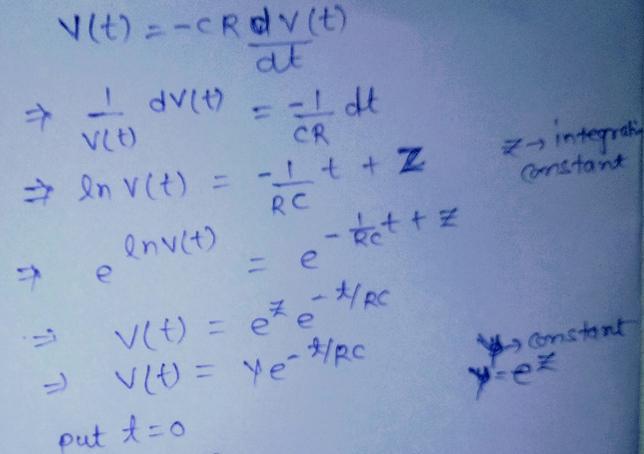 V(t) = -CR dV(t)/dt
⇒ 1/V(t) dV(t) = -1/CR dt
⇒ ln V(t) = -1/RC t + Z
Z → integrati
constant
⇒ e^(ln V(t)) = e^(-1/RC t + Z)
⇒ V(t) = e^Z e^(-t/RC)
⇒ V(t) = Y e^(-t/RC)
Y → constant
Y = e^Z
put t=0